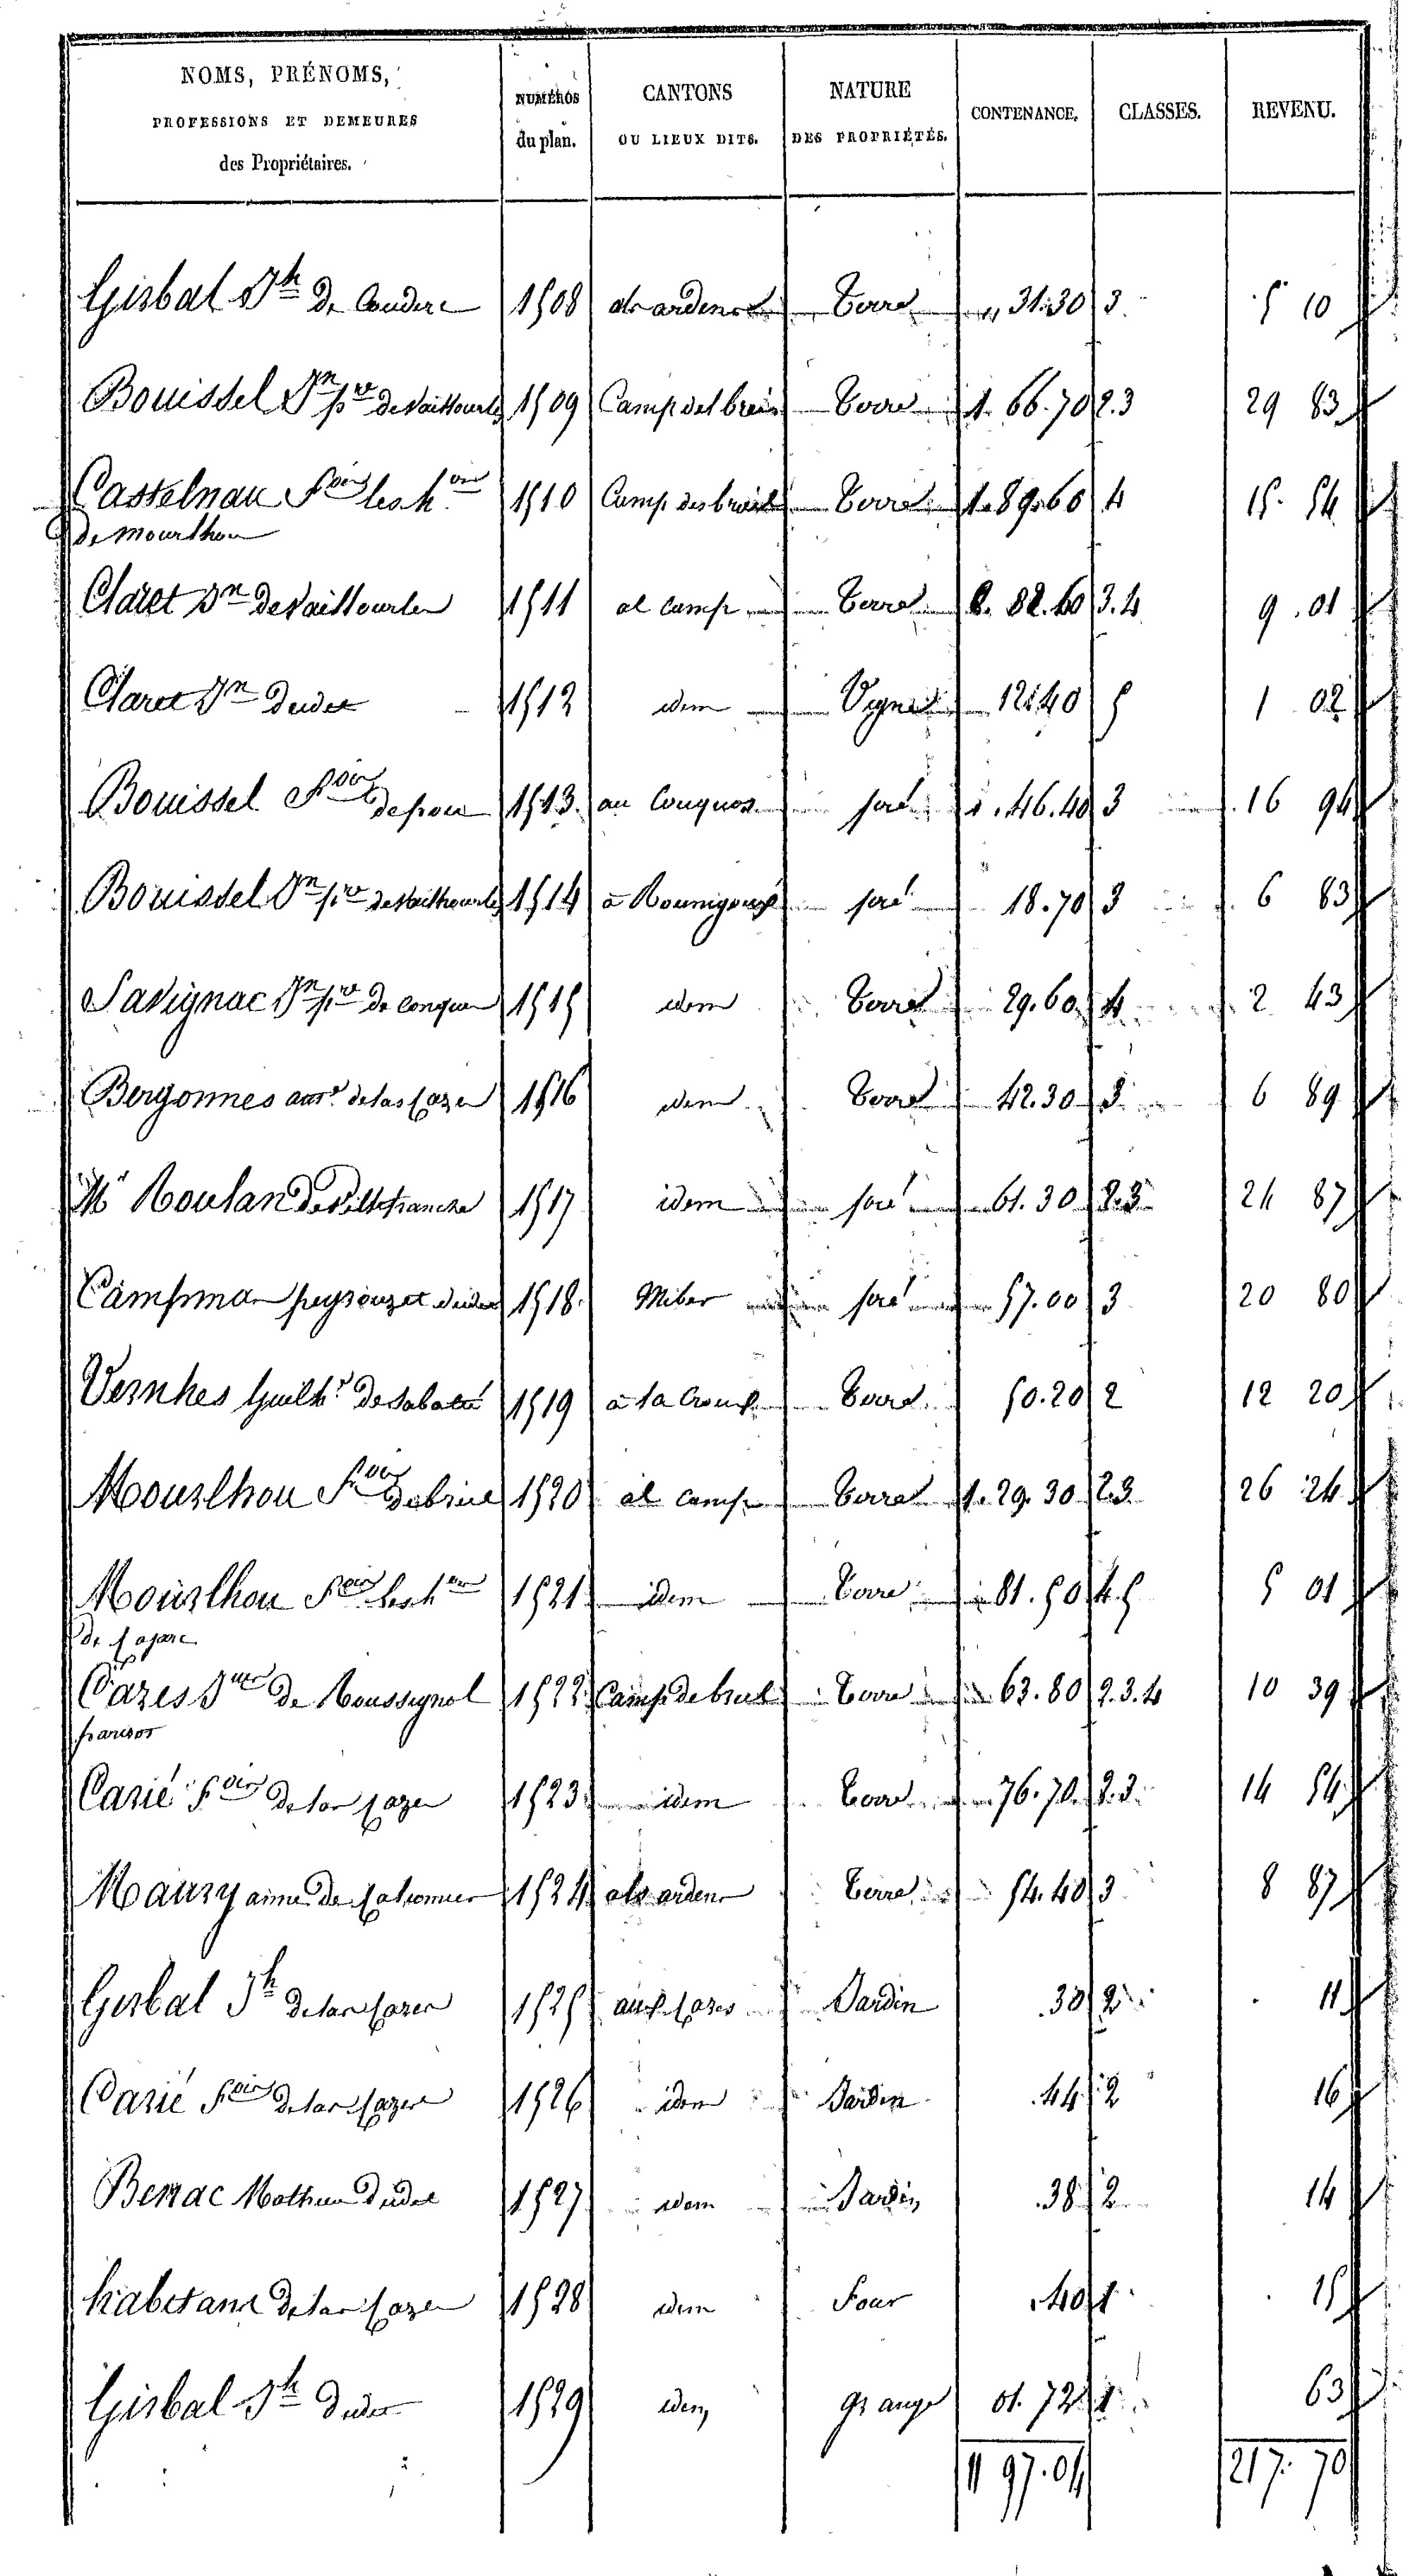 NOMS, PRÉNOMS, PROFESSIONS ET DEMEURES des Propriétaires. NUMÉROS du plan. CANTONS OU LIEUX DITS. NATURE DES PROPRIÉTÉS. CONTENANCE. CLASSES. REVENU.
Gisbal Jh de Couderc 1508 als ardenes Terre " 31.30 3 5 10
Bouissel Jn pre de Vailhourles 1509 Camp del breil Terre 1. 66.70 2.3 29 83
Castelnau Fois les hers 1510 Camp del breil Terre 1.89.60 4 15. 54
de Mourlhou
Claret Jn de Vailhourles 1511 al camp Terre 82.60 3.4 9.01
Claret Jn dudit 1512 idem Vigne 12.40 5 1 02
Bouissel Fois 1513 au Couquos pré 46.40 3 16 94
Bouissel Jn pre de Vailhourles 1514 à pré 18.70 3 6 83
Savignac Jn pre de 1515 idem Terre 29.60 4 2 43
Bergonnes de las Cazes 1516 idem Terre 42.30 3 6 89
Mr Roulan de Villefranche 1517 idem pré 61.30 2.3 24 87
Campmas dudit 1518 pré 57.00 3 20 80
Vernhes Guilhe de 1519 à la Terre 50.20 2 12 20
Mourlhou Fois 1520 al camp Terre 1. 29. 30 2.3 26 24
Mourlhou Fois les hers 1521 idem Terre 81.50 4.5 5 01
de
Cazes de Roussignol 1522 Camp de breil Terre 63.80 2.3.4 10 39
parisot
Carié Fois de las Cazes 1523 idem Terre 76.70 2.3 14 54
Maury ainé de 1524 als ardenes Terre 54.40 3 8 87
Gisbal Jh de las Cazes 1525 aux Cazes Jardin .30 2 11
Carié Fois de las Cazes 1526 idem Jardin .44 2 16
Berrac Mathieu dudit 1527 idem Jardin .38 2 14
habitans de las Cazes 1528 idem Four .40 1 15
Gisbal Jh dudit 1529 idem Grange 01. 72 1 63
11 97.04 217. 70